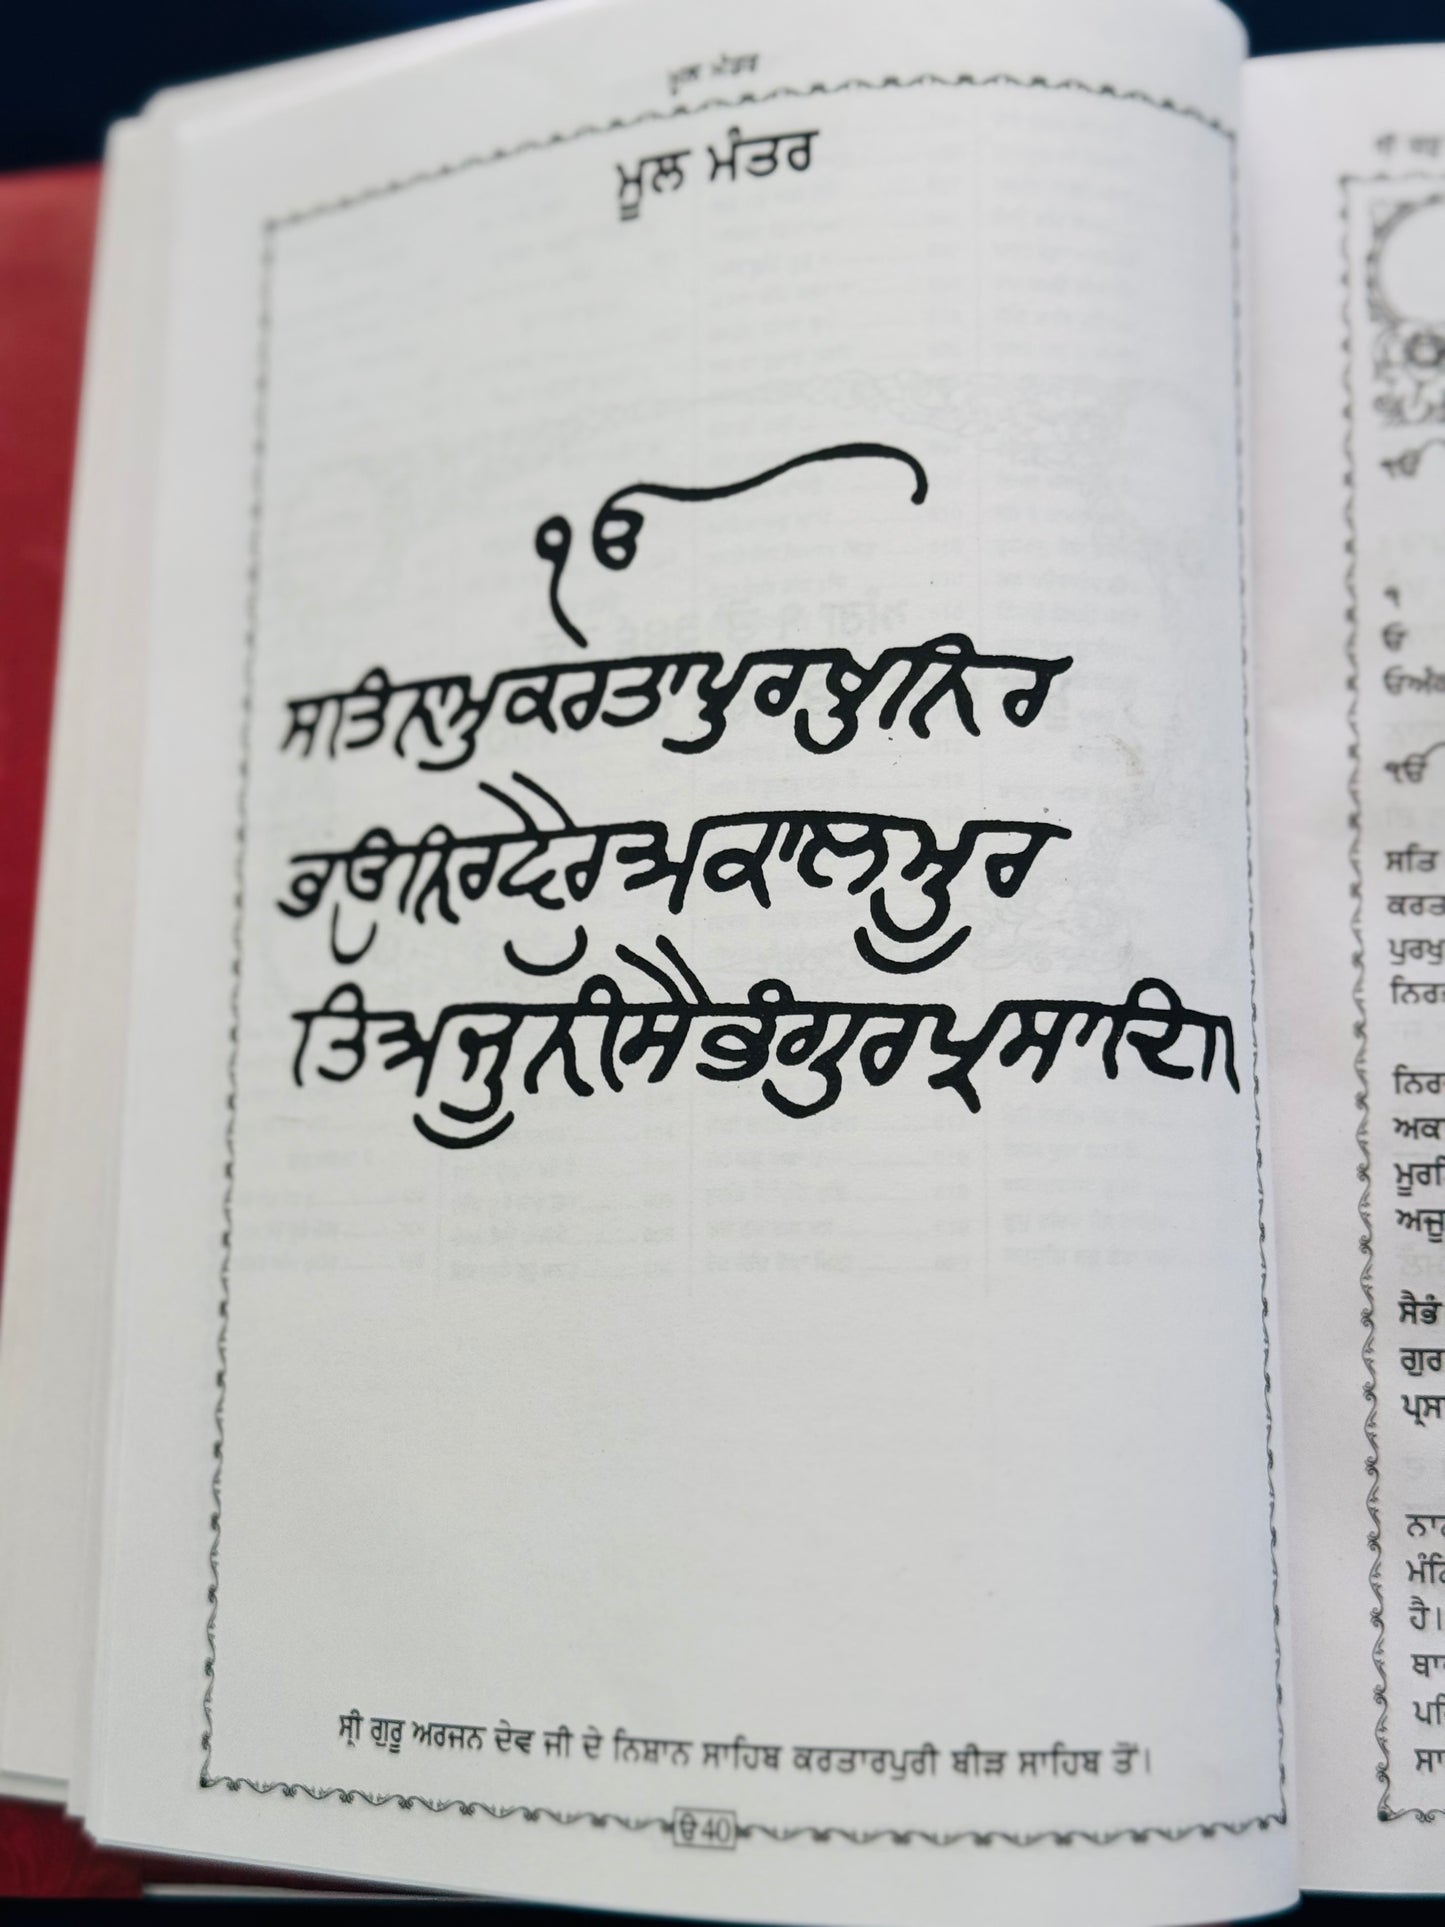 ਮੂਲ ਮੰਤਰ
ਮੂਲ ਮੰਤਰ
ੴ
ਸਤਿਨਾਮੁਕਰਤਾਪੁਰਖੁਨਿਰ
ਭਉਨਿਰਵੈਰੁਅਕਾਲਮੂਰ
ਤਿਅਜੂਨੀਸੈਭੰਗੁਰਪ੍ਰਸਾਦਿ॥
ਸ੍ਰੀ ਗੁਰੂ ਅਰਜਨ ਦੇਵ ਜੀ ਦੇ ਨਿਸ਼ਾਨ ਸਾਹਿਬ ਕਰਤਾਰਪੁਰੀ ਬੀੜ ਸਾਹਿਬ ਤੋਂ।
ੳ40
ੴ
ੴ
ਸਤਿ
ਨਿਰ
ਸੈਭੰ
ਗੁਰ
ਹੈ।